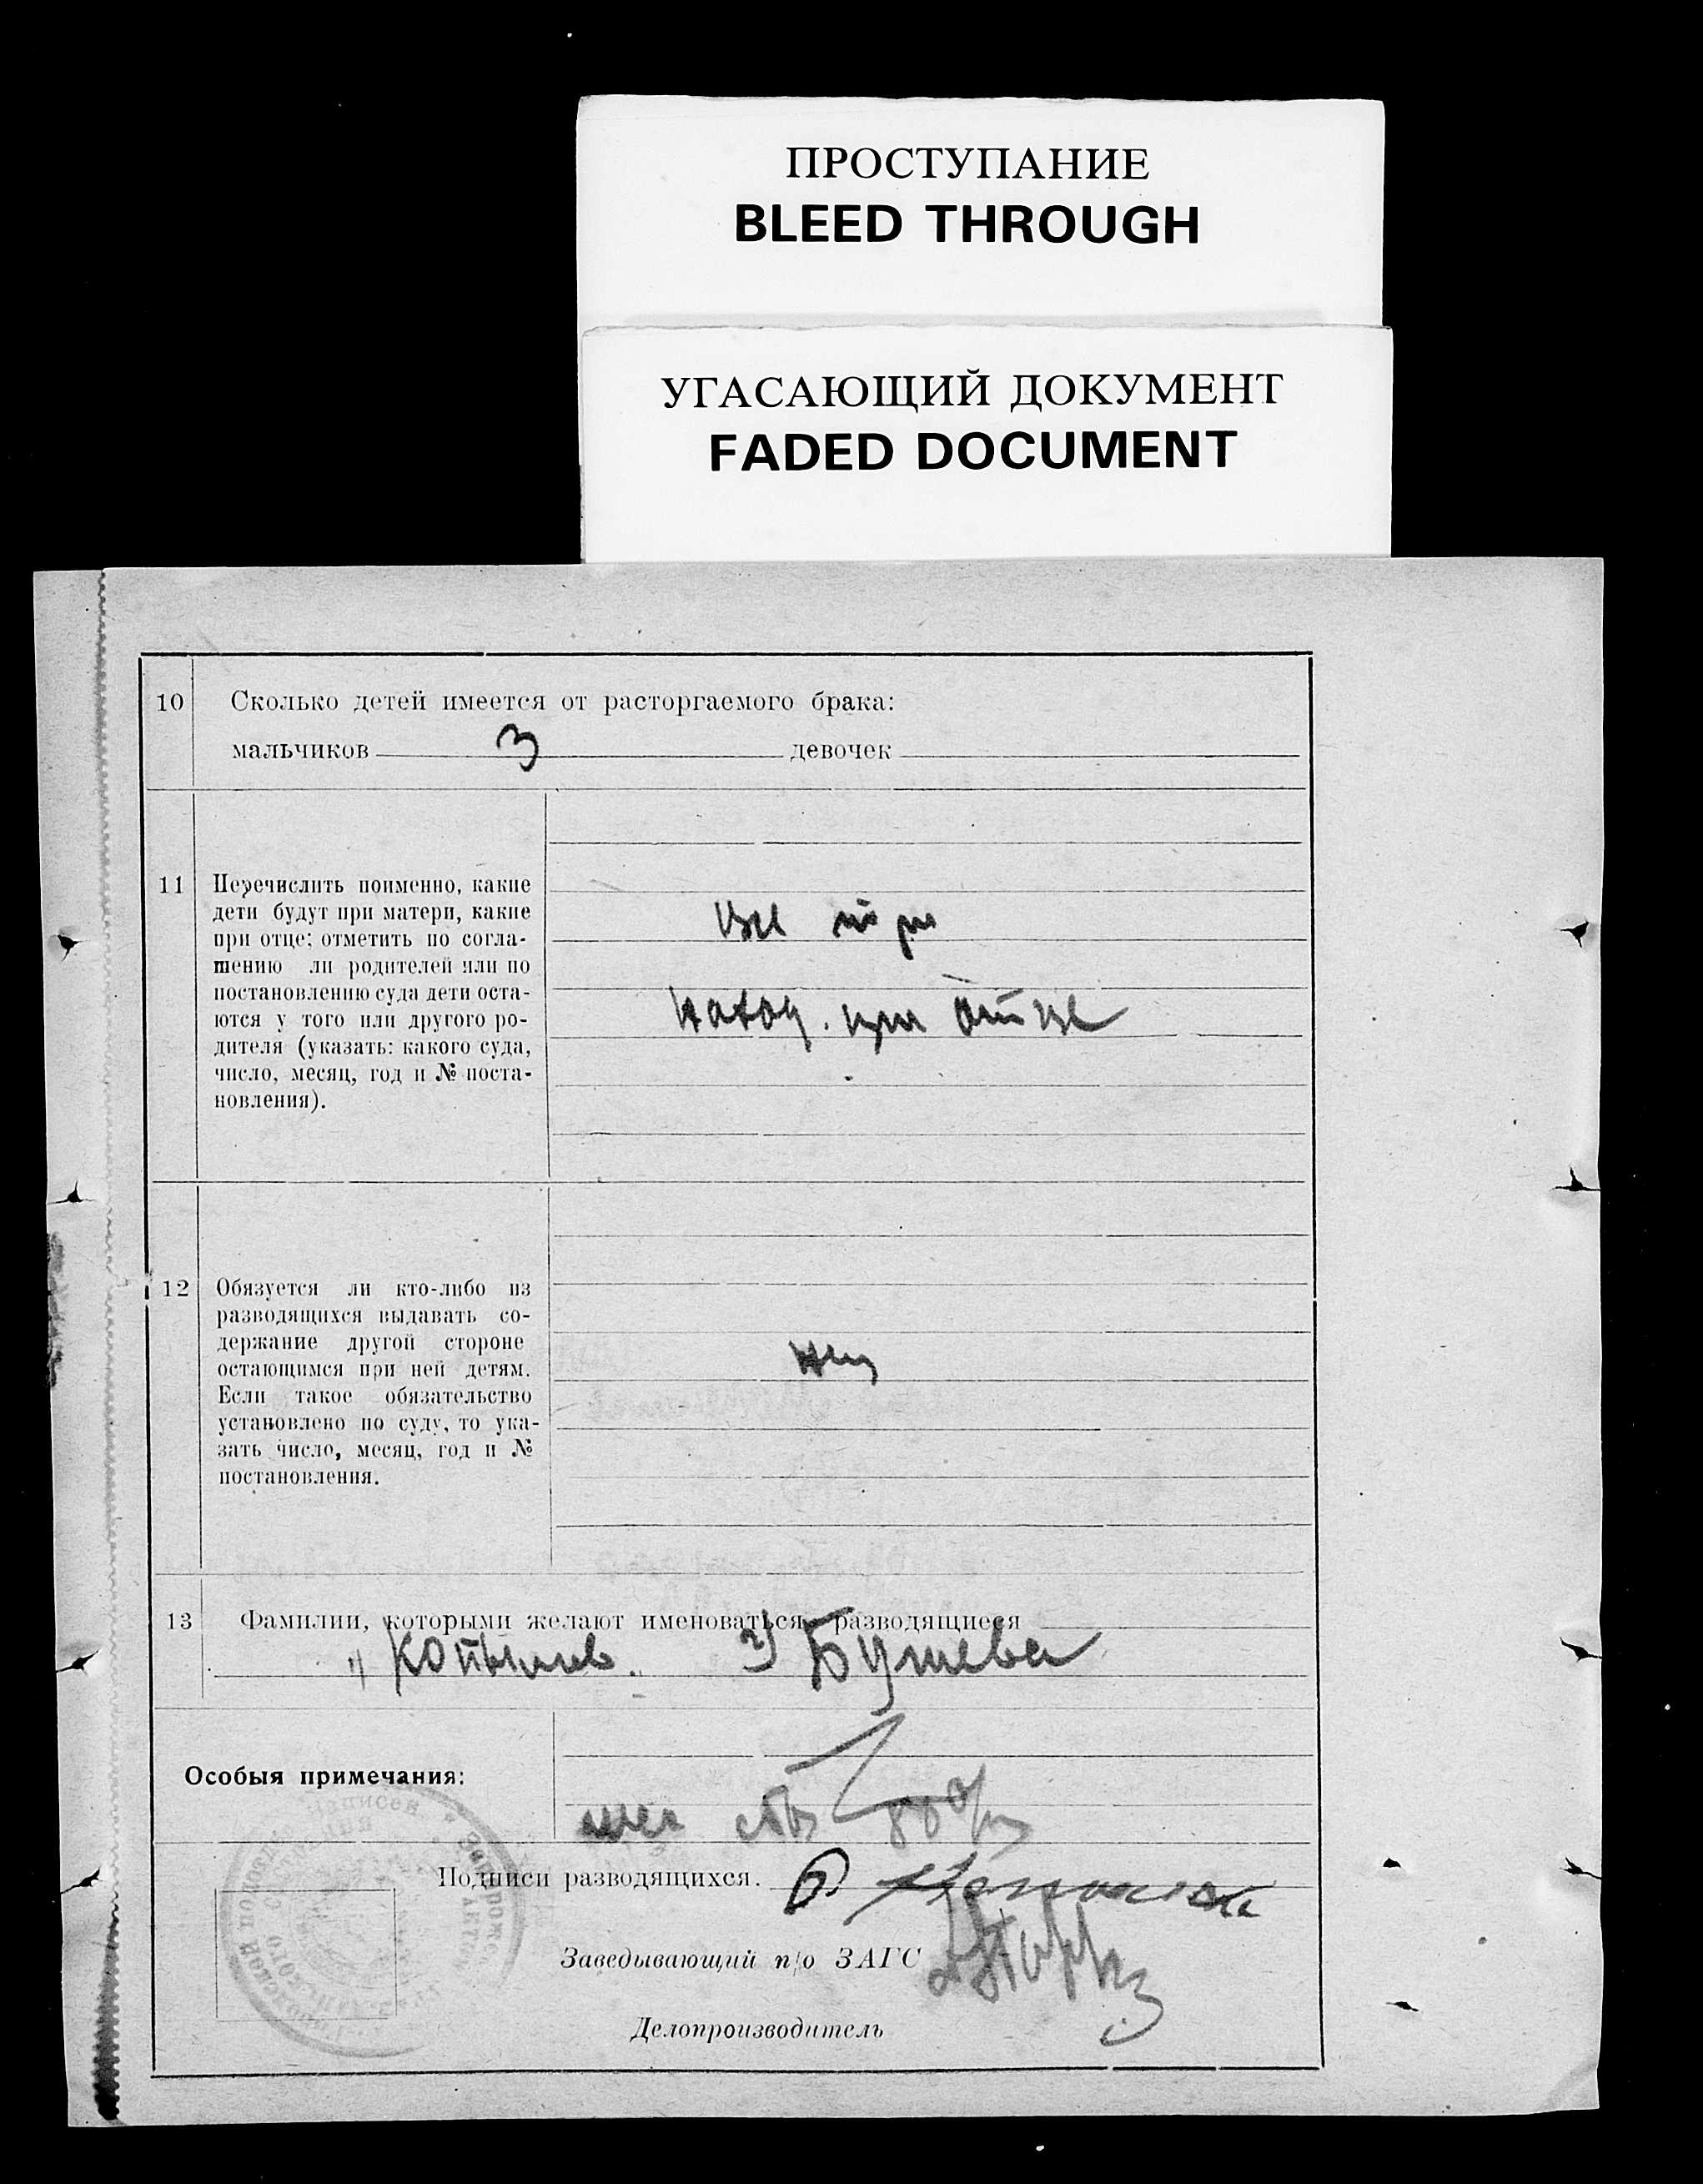 ПРОСТУПАНИЕ
BLEED THROUGH
УГАСАЮЩИЙ ДОКУМЕНТ
FADED DOCUMENT
10 Сколько детей имеется от расторгаемого брака:
мальчиков 3 девочек
11 Перечислить поименно, какие
дети будут при матери, какие
при отце; отметить по согла-
шению ли родителей или по
постановлению суда дети оста-
ются у того или другого ро-
дителя (указать: какого суда,
число, месяц, год и № поста-
новления).
Все три
наход. при отце
12 Обязуется ли кто-либо из
разводящихся выдавать со-
держание другой стороне
остающимся при ней детям.
Если такое обязательство
установлено по суду, то ука-
зать число, месяц, год и №
постановления.
нет
13 Фамилии, которыми желают именоваться разводящиеся
1) Копылов. 2) Бушева
Особыя примечания:
Подписи разводящихся.
Заведывающий п/о ЗАГС
Делопроизводитель